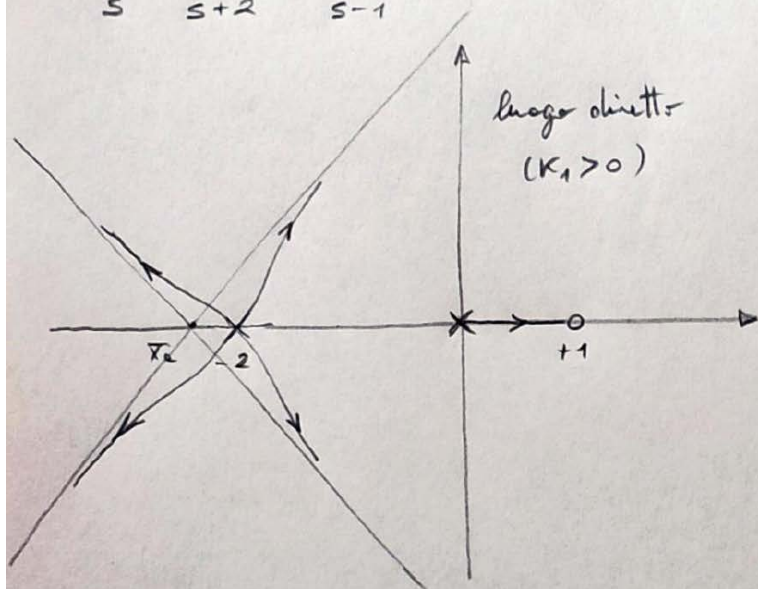 s s+2 s-1
luogo diretto
(K₁>0)
x̄a -2 +1